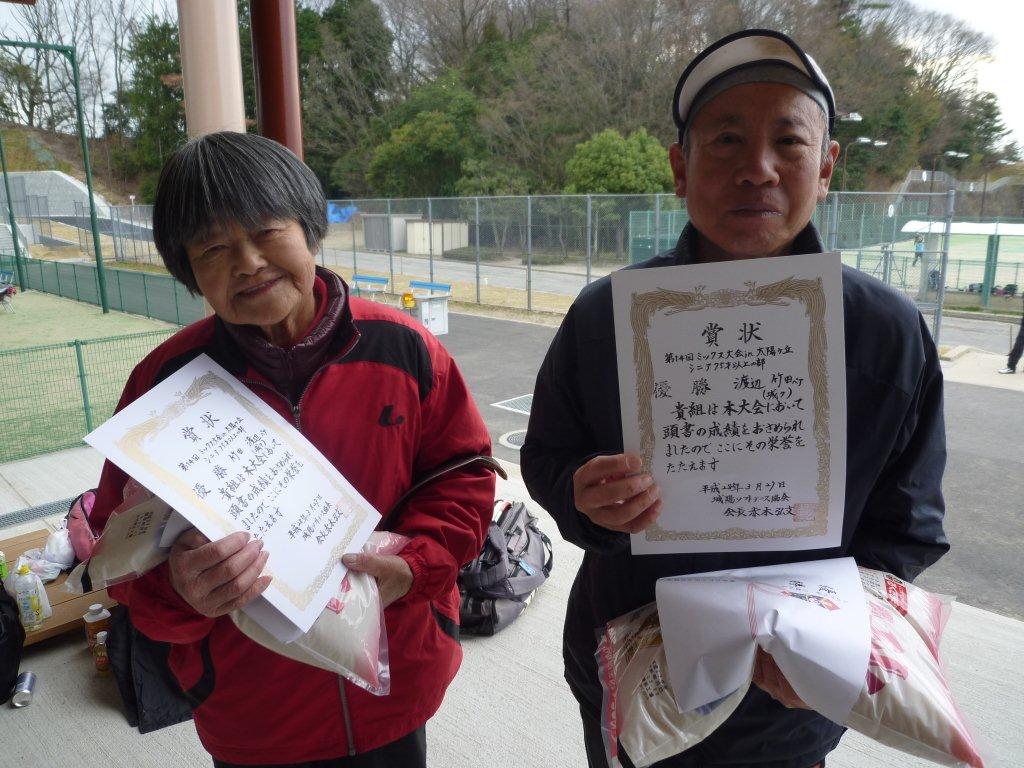 賞状
第14回ミックス大会in太陽ヶ丘
シニア75才以上の部
優勝 渡辺 竹田ペア
(城ヶ)
貴組は本大会において
頭書の成績をおさめられ
ましたのでここにその栄誉を
たたえます
平成28年3月27日
城陽ソフトテニス協会
会長 赤木弘文
賞状
第14回ミックス大会in太陽ヶ丘
シニア75才以上の部
優勝 竹田 渡辺ペア
貴組は本大会において
頭書の成績をおさめられ
ましたのでここにその栄誉を
たたえます
平成28年3月27日
城陽ソフトテニス協会
会長 赤木弘文